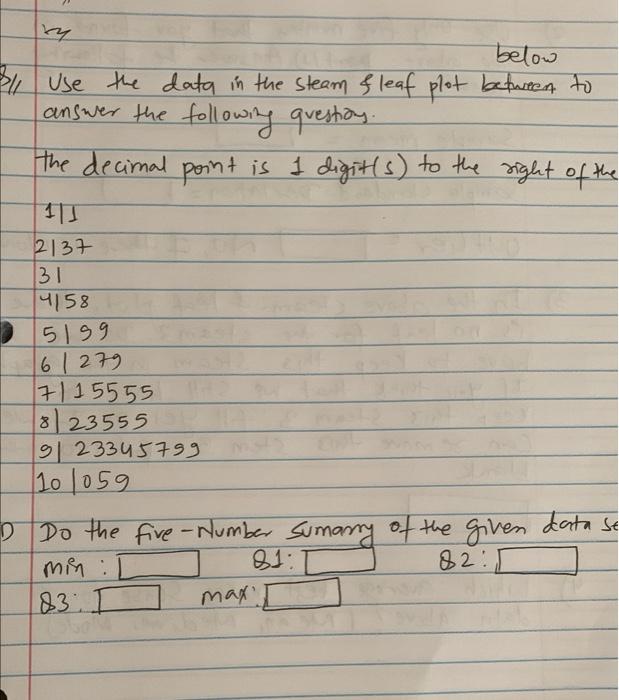 below
Use the data in the steam & leaf plot between to
answer the following question.
the decimal point is 1 digit(s) to the right of the
1|1
2|37
3|
4|58
5|99
6|279
7|15555
8|23555
9|23345799
10|059
Do the five-Number Sumarry of the given data se
min : Q1: Q2:
Q3: max: